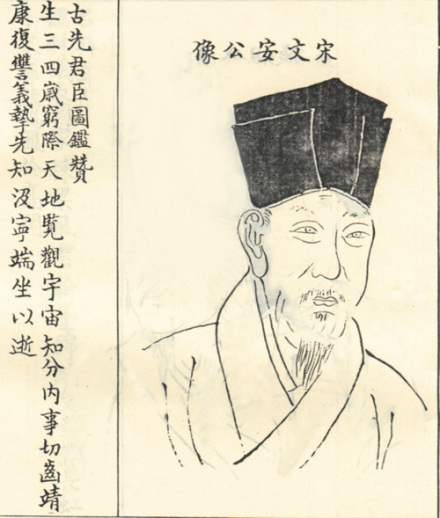 宋文安公像
古先君臣圖鑑贊
生三四歲窮際天地覧觀宇宙知分内事切齒靖
康復讐義摯先知沒寧端坐以逝